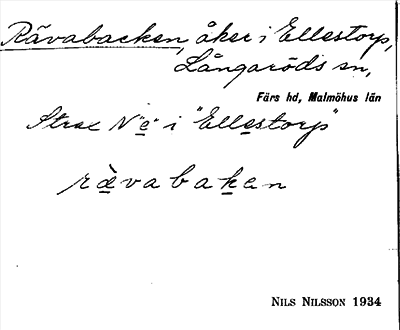 Rävabacken, åker i Ellestorp,
Långaröds sn,
Färs hd, Malmöhus län
Strax N "e" i "Ellestorp"
rävabaken
NILS NILSSON 1934